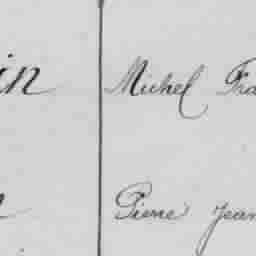 in Michel Fra
n Pierre Jean